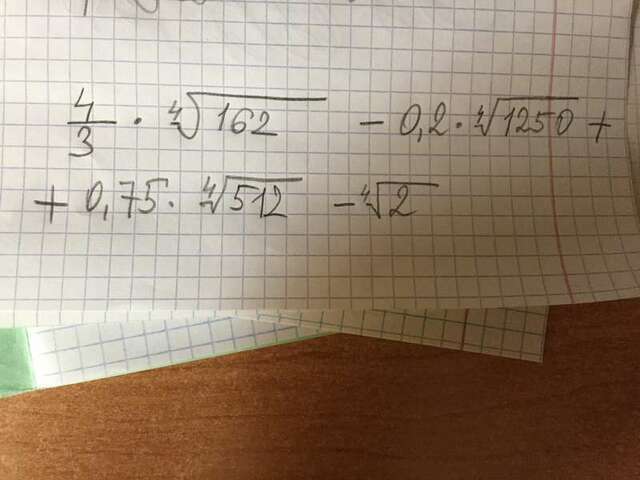 4/3 · ∜162 − 0,2 · ∜1250 +
+ 0,75 · ∜512 − ∜2